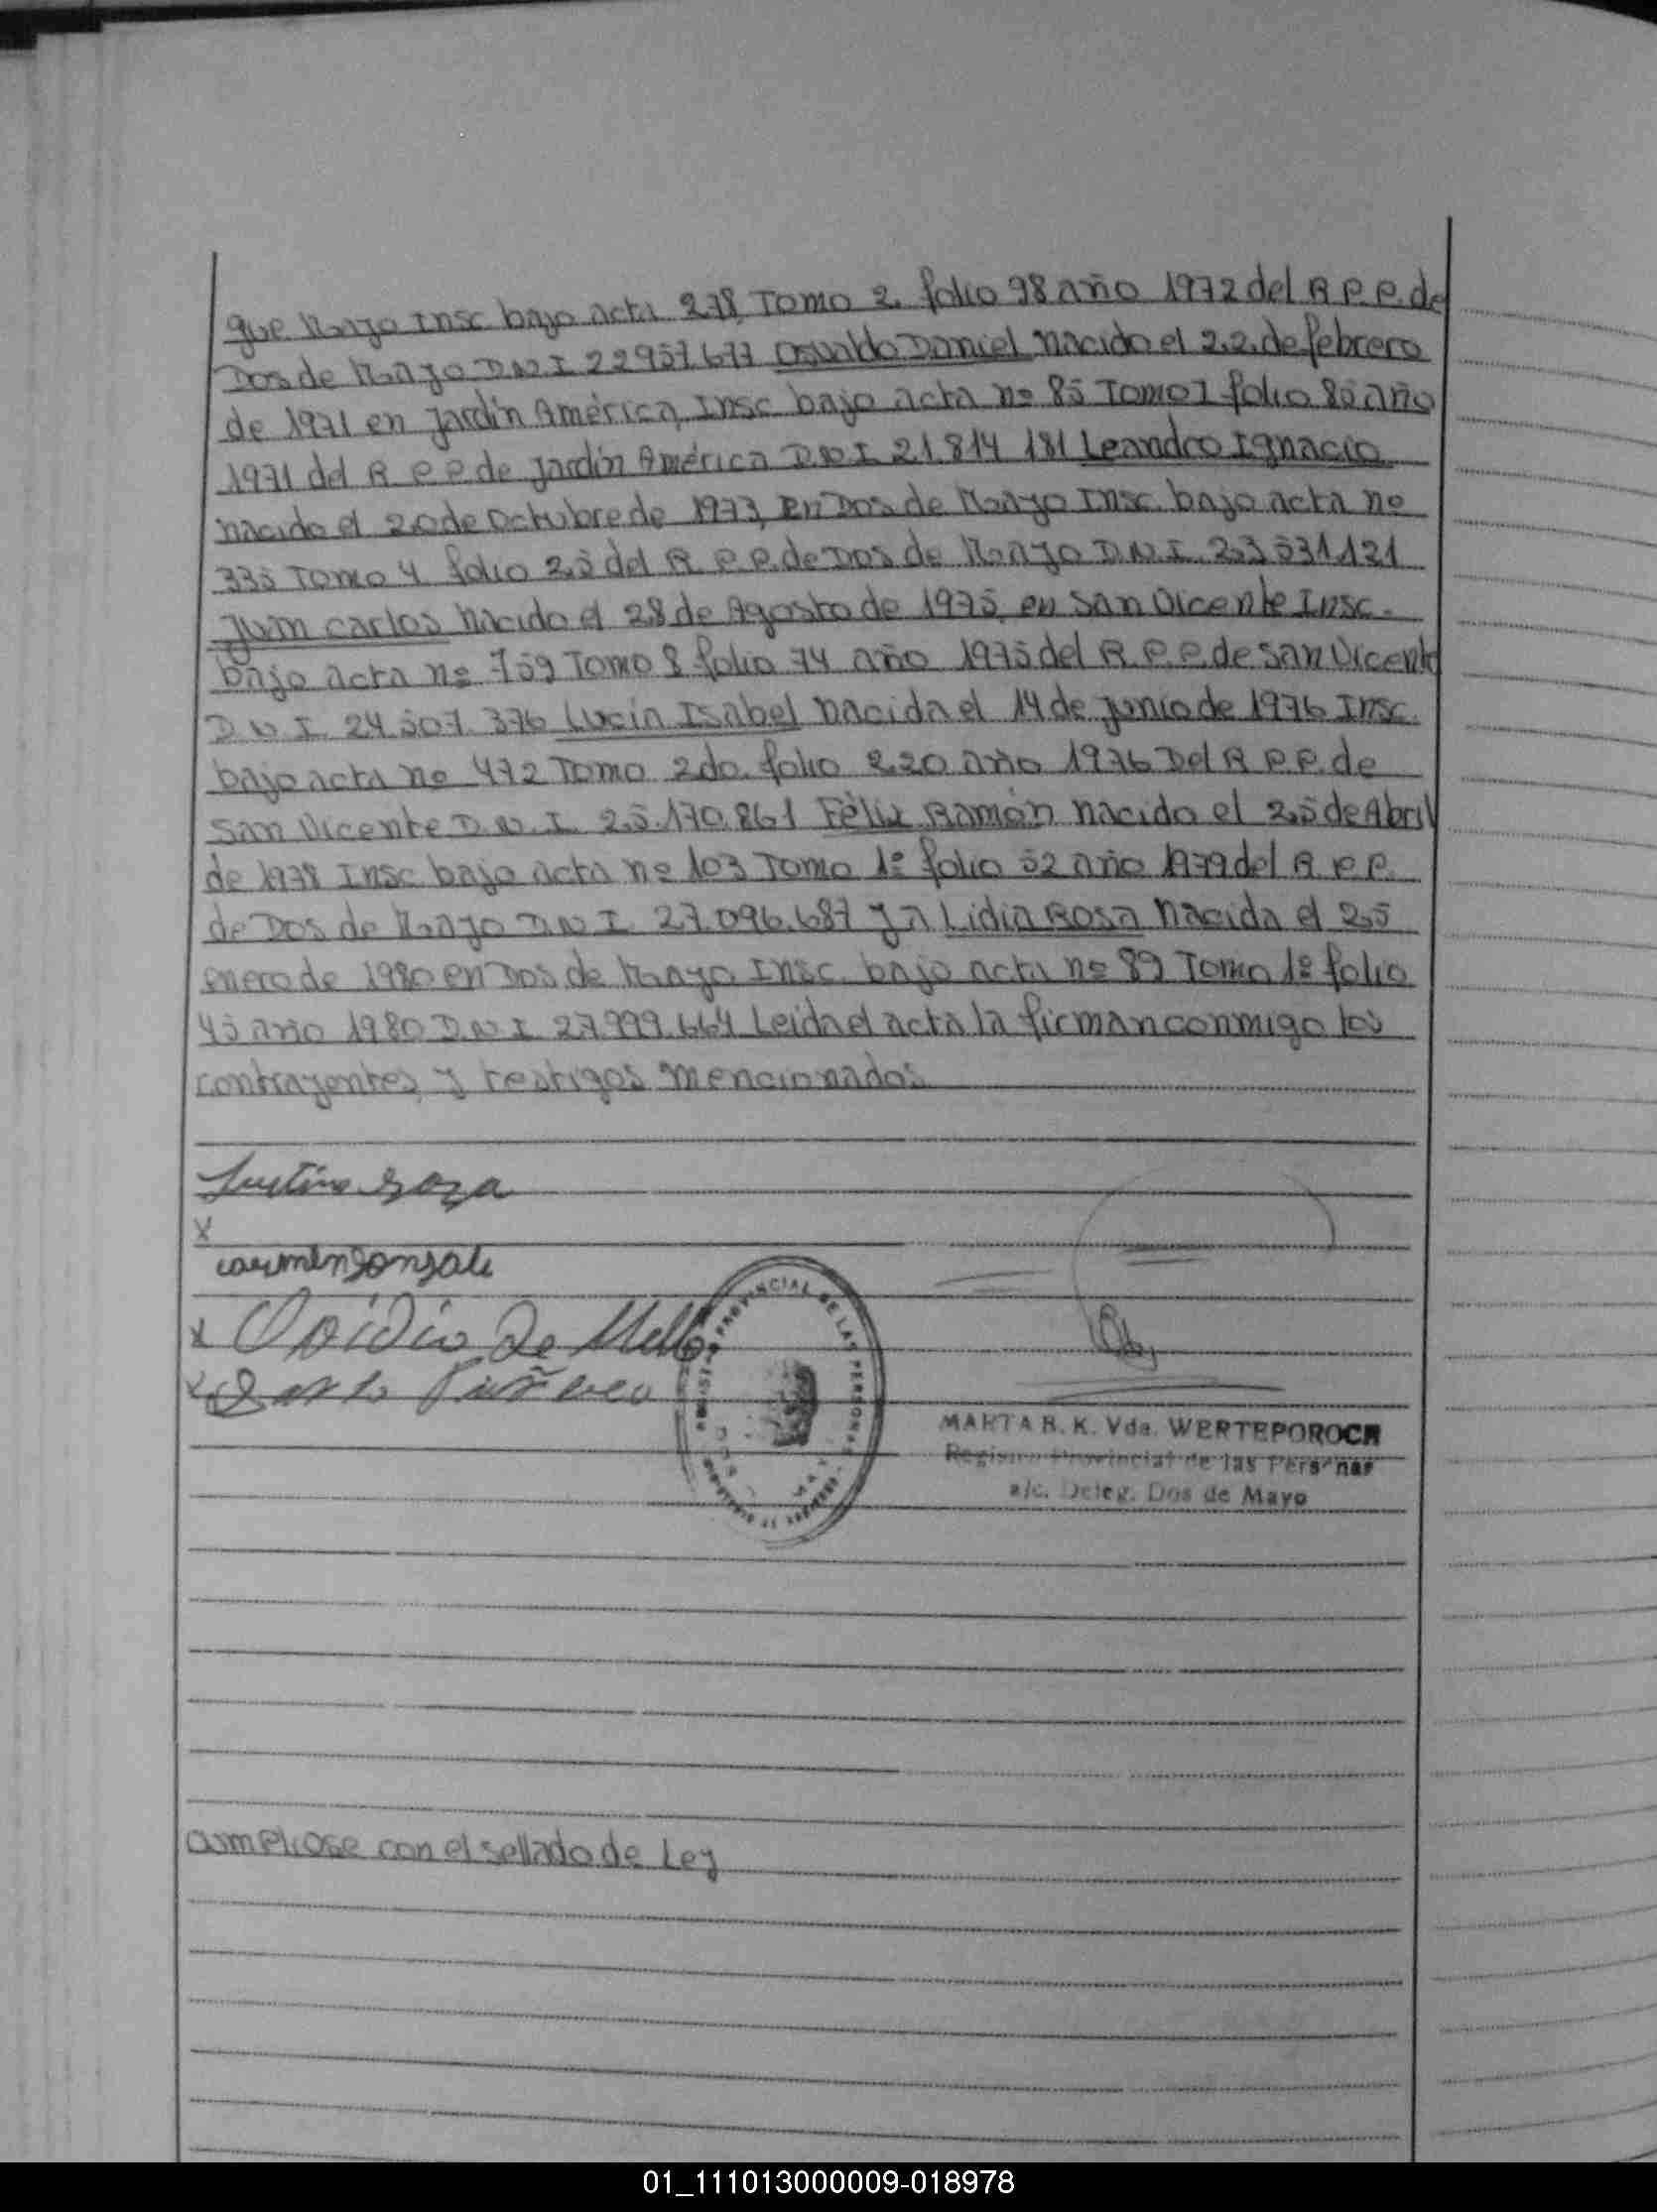 que Mayo Insc bajo acta 278, Tomo 2. folio 98 año 1972 del R.P.P. de
Dos de Mayo D.N.I 22957.677 Osvaldo Daniel nacido el 22 de febrero
de 1971 en Jardín América, Insc bajo acta nº 85 Tomo 1 folio 85 año
1971 del R.P.P. de Jardín América D.N.I 21.814 181 Leandro Ignacio
nacido el 20 de Octubre de 1973, En Dos de Mayo Insc. bajo acta nº
335 Tomo 4 folio 25 del R.P.P. de Dos de Mayo D.N.I. 23531.121
Juan carlos nacido el 28 de Agosto de 1975, en San Vicente Insc.
bajo acta nº 759 Tomo 8 folio 74 año 1975 del R.P.P. de San Vicente
D.N.I. 24.507.376 Lucia Isabel nacida el 14 de junio de 1976 Insc.
bajo acta nº 472 Tomo 2do. folio 220 año 1976 Del R.P.P. de
San Vicente D.N.I. 25.170.861 Félix Ramón nacido el 25 de Abril
de 1978 Insc bajo acta nº 103 Tomo 1º folio 52 año 1979 del R.P.P.
de Dos de Mayo D.N.I. 27.096.687 y a Lidia Rosa nacida el 25
enero de 1980 en Dos de Mayo Insc. bajo acta nº 89 Tomo 1º folio
45 año 1980 D.N.I 27.999.664 Leida el acta la firman conmigo los
contrayentes y testigos mencionados
x
carmen gonzale
x Ovidio De Mello
x
PROVINCIAL DE LAS PERSONAS
MARTA R. K. Vda. WERTEPOROCH
Registro Provincial de las Personas
a/c. Deleg. Dos de Mayo
cumpliose con el sellado de Ley
01_111013000009-018978